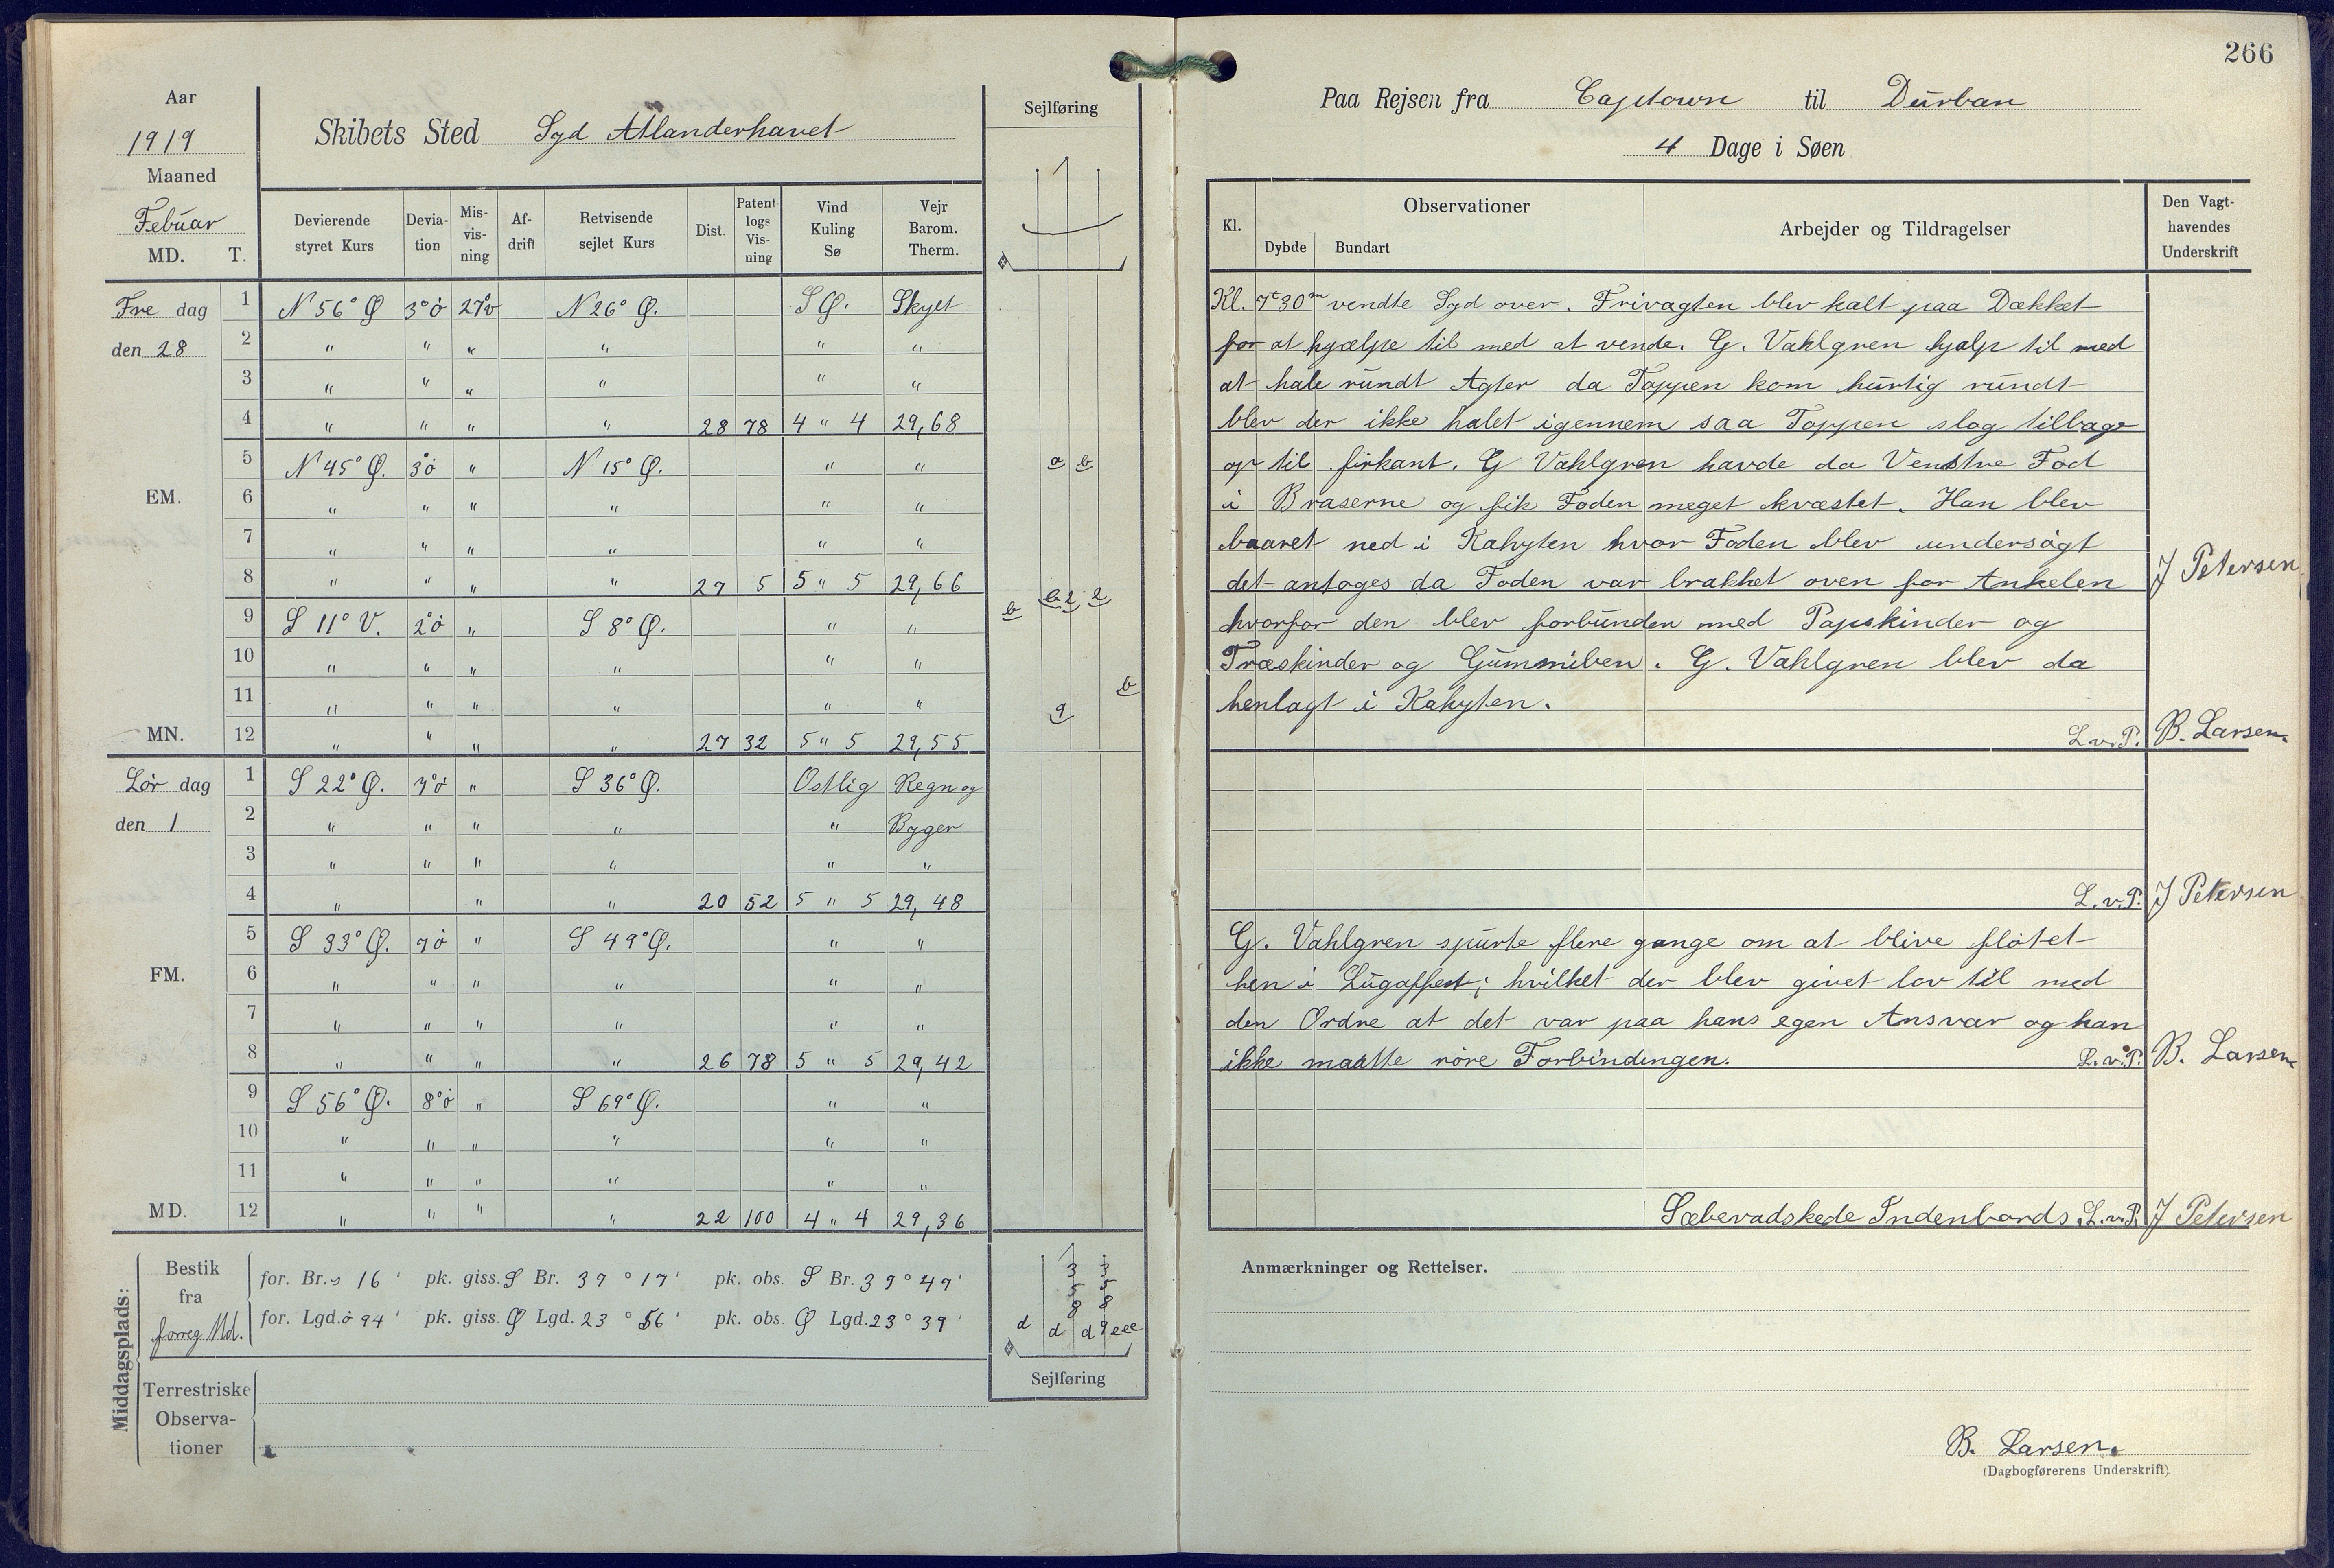 266
Aar
1919
Maaned
Febuar
MD. T.
Skibets Sted Syd Atlanderhavet
Sejlføring
Devierende styret Kurs
Deviation
Misvisning
Afdrift
Retvisende sejlet Kurs
Dist.
Patent logs Visning
Vind Kuling Sø
Vejr Barom. Therm.
Fre dag 1 N 56° Ø 3° ö 27° v N 26° Ø. S Ø. Skyet
den 28 2 " " " " " "
3 " " " " " "
4 " " " " 28 78 4 " 4 29,68
5 N 45° Ø. 3° ö " N 15° Ø. " " a b
EM. 6 " " " " " "
7 " " " " " "
8 " " " " 27 5 5 " 5 29,66
b b 2 2
9 S 11° V. 2° ö " S 8° Ø. " "
10 " " " " " "
11 " " " " " " b
9
MN. 12 " " " " 27 32 5 " 5 29,55
Lör dag 1 S 22° Ø. 7° ö " S 36° Ø. Ostlig Regn og
den 1 2 " " " " " Byger
3 " " " " " "
4 " " " 20 52 5 " 5 29,48
5 S 33° Ø. 7 ö " S 49° Ø. " "
FM. 6 " " " " " "
7 " " " " " "
8 " " " " 26 78 5 " 5 29,42
9 S 56° Ø. 8° ö " S 69° Ø. " "
10 " " " " " "
11 " " " " " "
MD. 12 " " " " 22 100 4 " 4 29,36
Middagsplads:
Bestik fra forreg Md.
for. Br. s 16 ' pk. giss. S Br. 37 ° 17 ' pk. obs. S Br. 39 ° 47 '
for. Lgd. ö 94 ' pk. giss. Ø Lgd. 23 ° 56 ' pk. obs. Ø Lgd. 23 ° 39 '
3 3
5 5
8 8
d d d 9 eee
Sejlføring
Terrestriske
Observa-
tioner
Paa Rejsen fra Captown til Durban
4 Dage i Søen
Kl.
Observationer
Dybde Bundart
Arbejder og Tildragelser
Den Vagt-
havendes
Underskrift
Kl. 7t 30m vendte Syd over. Frivagten blev kalt paa Dækket
for at hjælpe til med at vende. G. Vahlgren hjalp til med
at hale rundt Agter da Toppen kom hurtig rundt
blev der ikke halet igennem saa Toppen slog tilbage
op til firkant. G Vahlgren havde da Venstre Fod
i Braserne og fik Foden meget kvæstet. Han blev
baaret ned i Kahyten hvor Foden blev undersögt
det antoges da Foden var brækket oven for Ankelen J Petersen
hvorfor den blev forbunden med Papskinder og
Træskinder og Gummiben. G. Vahlgren blev da
henlagt i Kahyten.
L.v.P. B. Larsen.
L.v.P. J Petersen
G. Vahlgren spurte flere gange om at blive flötet
hen i Lugaffet; hvilket der blev givet lov til med
den Ordre at det var paa hans egen Ansvar og han
ikke maatte röre Forbindingen. L.v.P. B. Larsen
Sæbevadskede Indenbords. L.v.P. J Petersen
Anmærkninger og Rettelser.
B. Larsen.
(Dagbogførerens Underskrift)